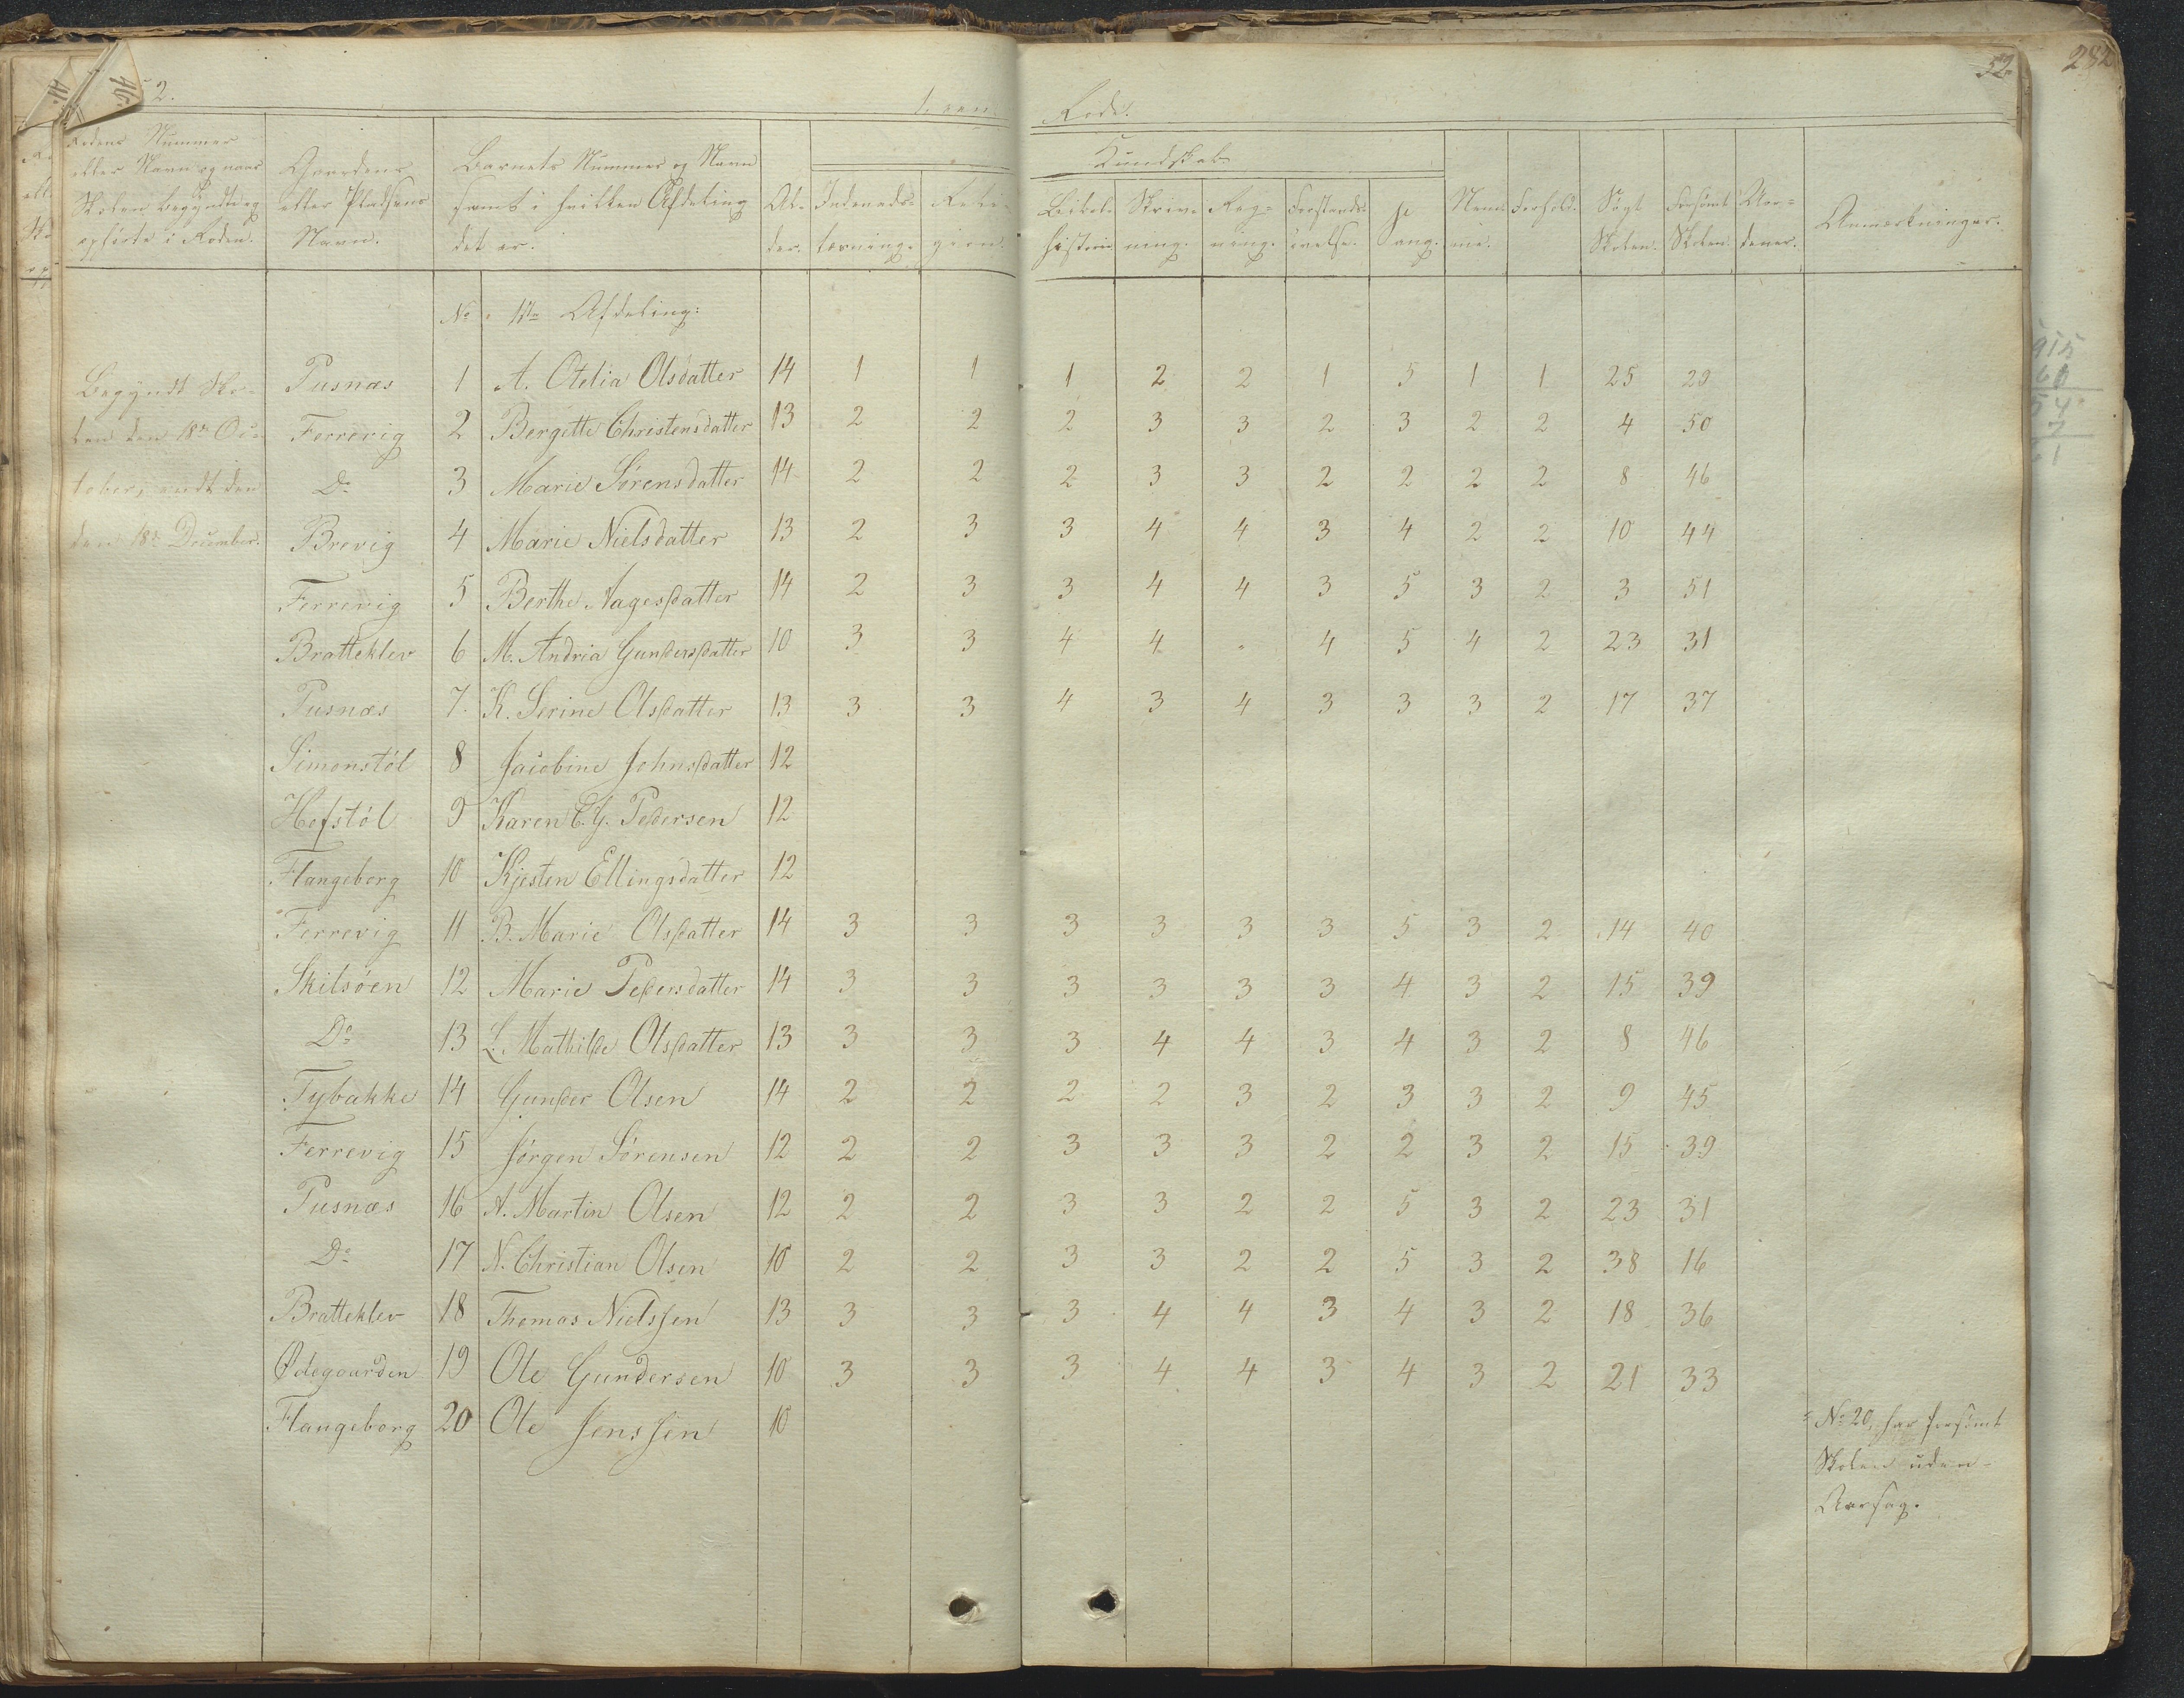 2. 52. 232
Rode.
Rodens Nummer eller Navn og naar Skolen begyndte og ophørte i Roden. | Gaardens eller Pladsens Navn. | Barnets Nummer og Navn samt i hvilken Afdeling det er. | Al-der. | Kundskab: Indenads-læsning. | Reli-gion. | Bibel-historie | Skriv-ning. | Reg-ning. | Forstands-øvelse. | Sang. | Nem-me. | Forhold. | Søgt Skolen. | Forsömt Skolen. | Anmærkninger.
No 1ste Afdeling:
Pusnæs 1 A. Otelia Olsdatter 14 1 1 1 2 2 1 5 1 1 25 29
Ferrevig 2 Bergitte Christensdatter 13 2 2 2 3 3 2 3 2 2 4 50
Do 3 Marie Sørensdatter 14 2 2 2 3 3 2 2 2 2 8 46
Brevig 4 Marie Nielsdatter 13 2 3 3 4 4 3 4 2 2 10 44
Ferrevig 5 Berthe Aagesdatter 14 2 3 3 4 4 3 5 3 2 3 51
Bratteklev 6 M. Andria Gundersdatter 10 3 3 4 4 " 4 5 4 2 23 31
Pusnæs 7. K. Serine Olsdatter 13 3 3 4 3 4 3 3 3 2 17 37
Simonstöl 8 Jacobine Johnsdatter 12
Hofstöl 9 Karen C. G. Pedersen 12
Flangeborg 10 Kjesten Ellingsdatter 12
Ferrevig 11 B. Marie Olsdatter 14 3 3 3 3 3 3 5 3 2 14 40
Skilsöen 12 Marie Pedersdatter 14 3 3 3 3 3 3 4 3 2 15 39
Do 13 L. Mathilde Olsdatter 13 3 3 3 4 4 3 4 3 2 8 46
Tybakke 14 Gunder Olsen 14 2 2 2 2 3 2 3 3 2 9 45
Ferrevig 15 Jørgen Sørensen 12 2 2 3 3 3 2 2 3 2 15 39
Pusnæs 16 A. Martin Olsen 12 2 2 3 3 2 2 5 3 2 23 31
Do 17 N. Christian Olsen 10 2 2 3 3 2 2 5 3 2 38 16
Bratteklev 18 Thomas Nielssen 13 3 3 3 4 4 3 4 3 2 18 36
Ødegaarden 19 Ole Gundersen 10 3 3 3 4 4 3 4 3 2 21 33
Flangeborg 20 Ole Jenssen 10
Begyndt Sko-
len den 18de Oc-
tober, endt den
den 18de December.
No 20, har forsömt
Skolen uden
Aarsag.